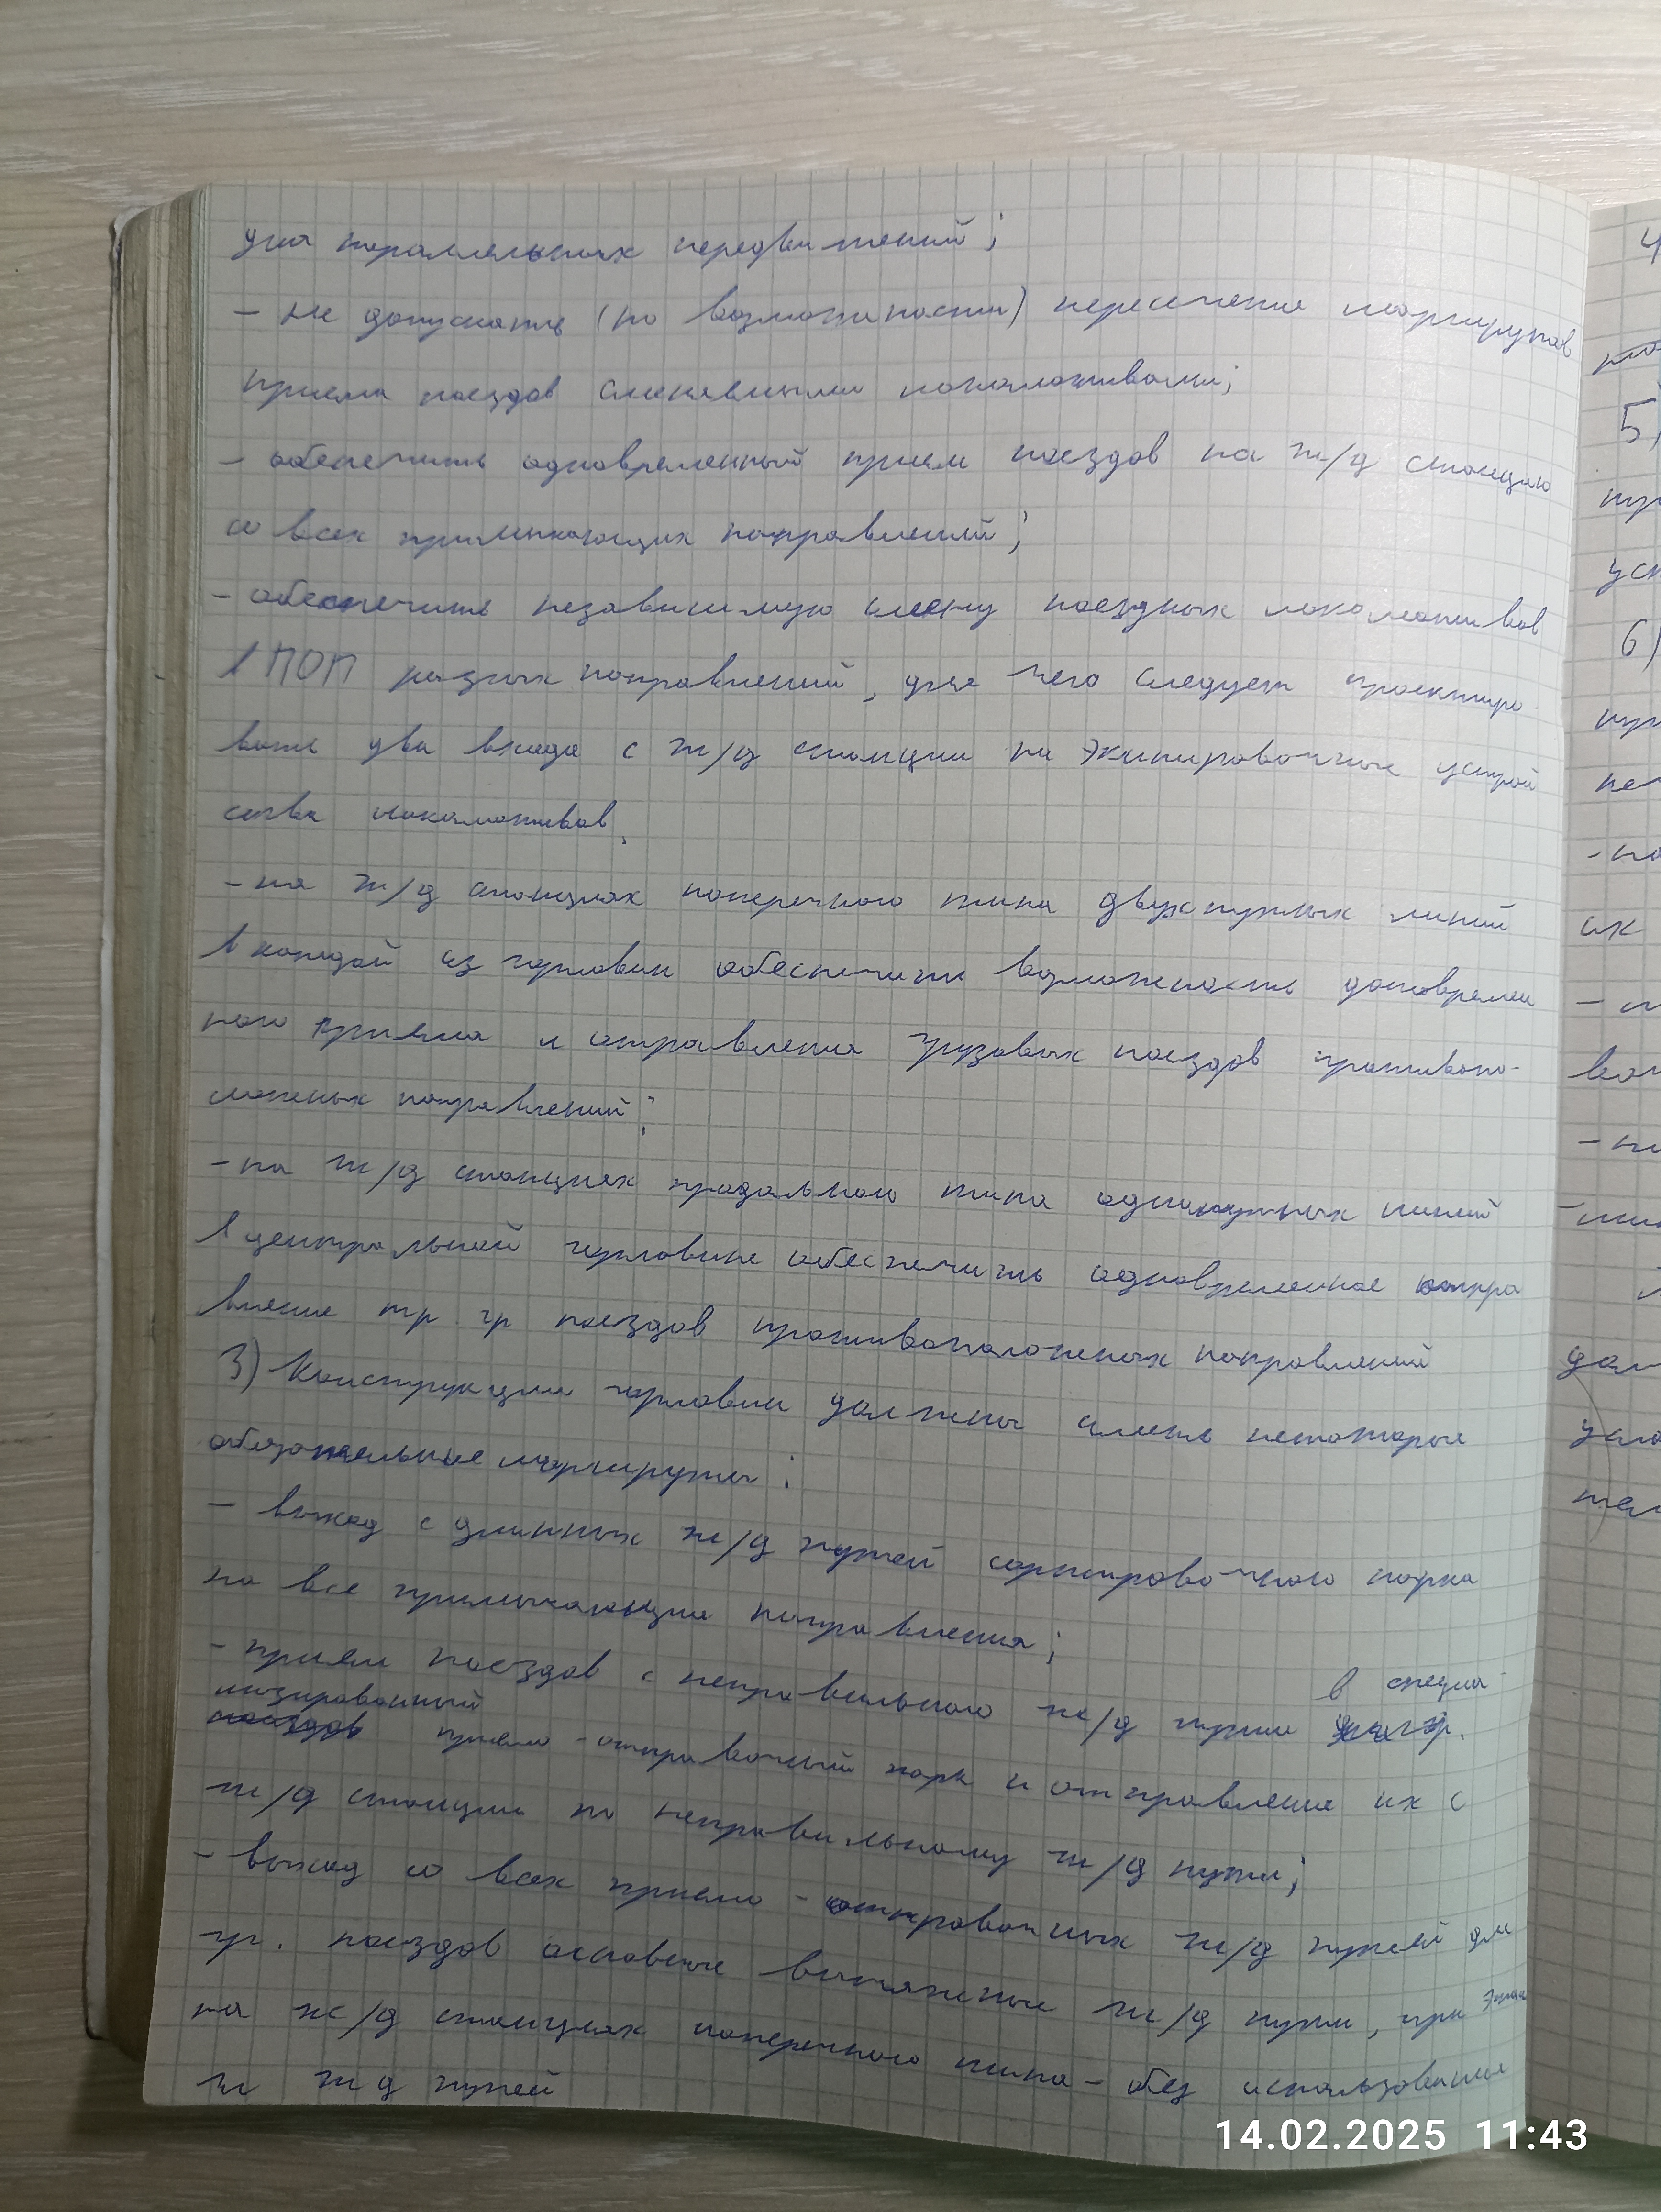 для параллельных передвижений;
- не допускать (по возможности) пересечения маршрутов
приема поездов сменяемыми локомотивами;
- обеспечить одновременный прием поездов на ж/д станцию
со всех примыкающих направлений;
- обеспечить независимую смену поездных локомотивов
в ПОП разных направлений, для чего следует проектиро-
вать два входа с ж/д станции на экипировочные устрой
ства локомотивов.
- на ж/д станциях поперечного типа двухпутных линий
в каждой из горловин обеспечить возможность одновремен
ного приема и отправления грузовых поездов противопо-
ложных направлений;
- на ж/д станциях продольного типа однопутных линий
в центральной горловине обеспечить одновременное отпра
вление тр. гр поездов противоположных направлений
3) Конструкции горловин должны иметь некоторые
обязательные маршруты:
- выход с длинных ж/д путей сортировочного парка
на все примыкающие направления;
- прием поездов с неправильного ж/д пути в специа-
лизированный приемо-отправочный парк и отправление их с
ж/д станции по неправильному ж/д пути;
- выход со всех приемо-отправочных ж/д путей для
гр. поездов основные вытяжные ж/д пути, при этом
на ж/д станциях поперечного типа - без использования
гл ж д путей
14.02.2025 11:43